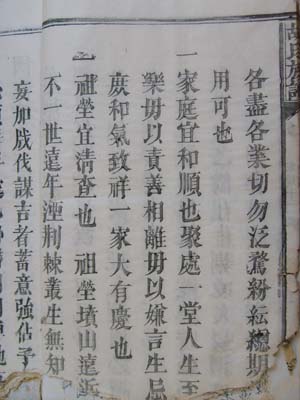 各盡各業切勿泛騖紛紜總期
用可也
一家庭宜和順也聚處一堂人生至
樂毋以責善相離毋以嫌言生忌
庶和氣致祥一家大有慶也
一祖塋宜清查也 祖塋墳山遠近
不一世遠年湮荆棘叢生無知
妄加戕伐謀吉者蓄意強佔予